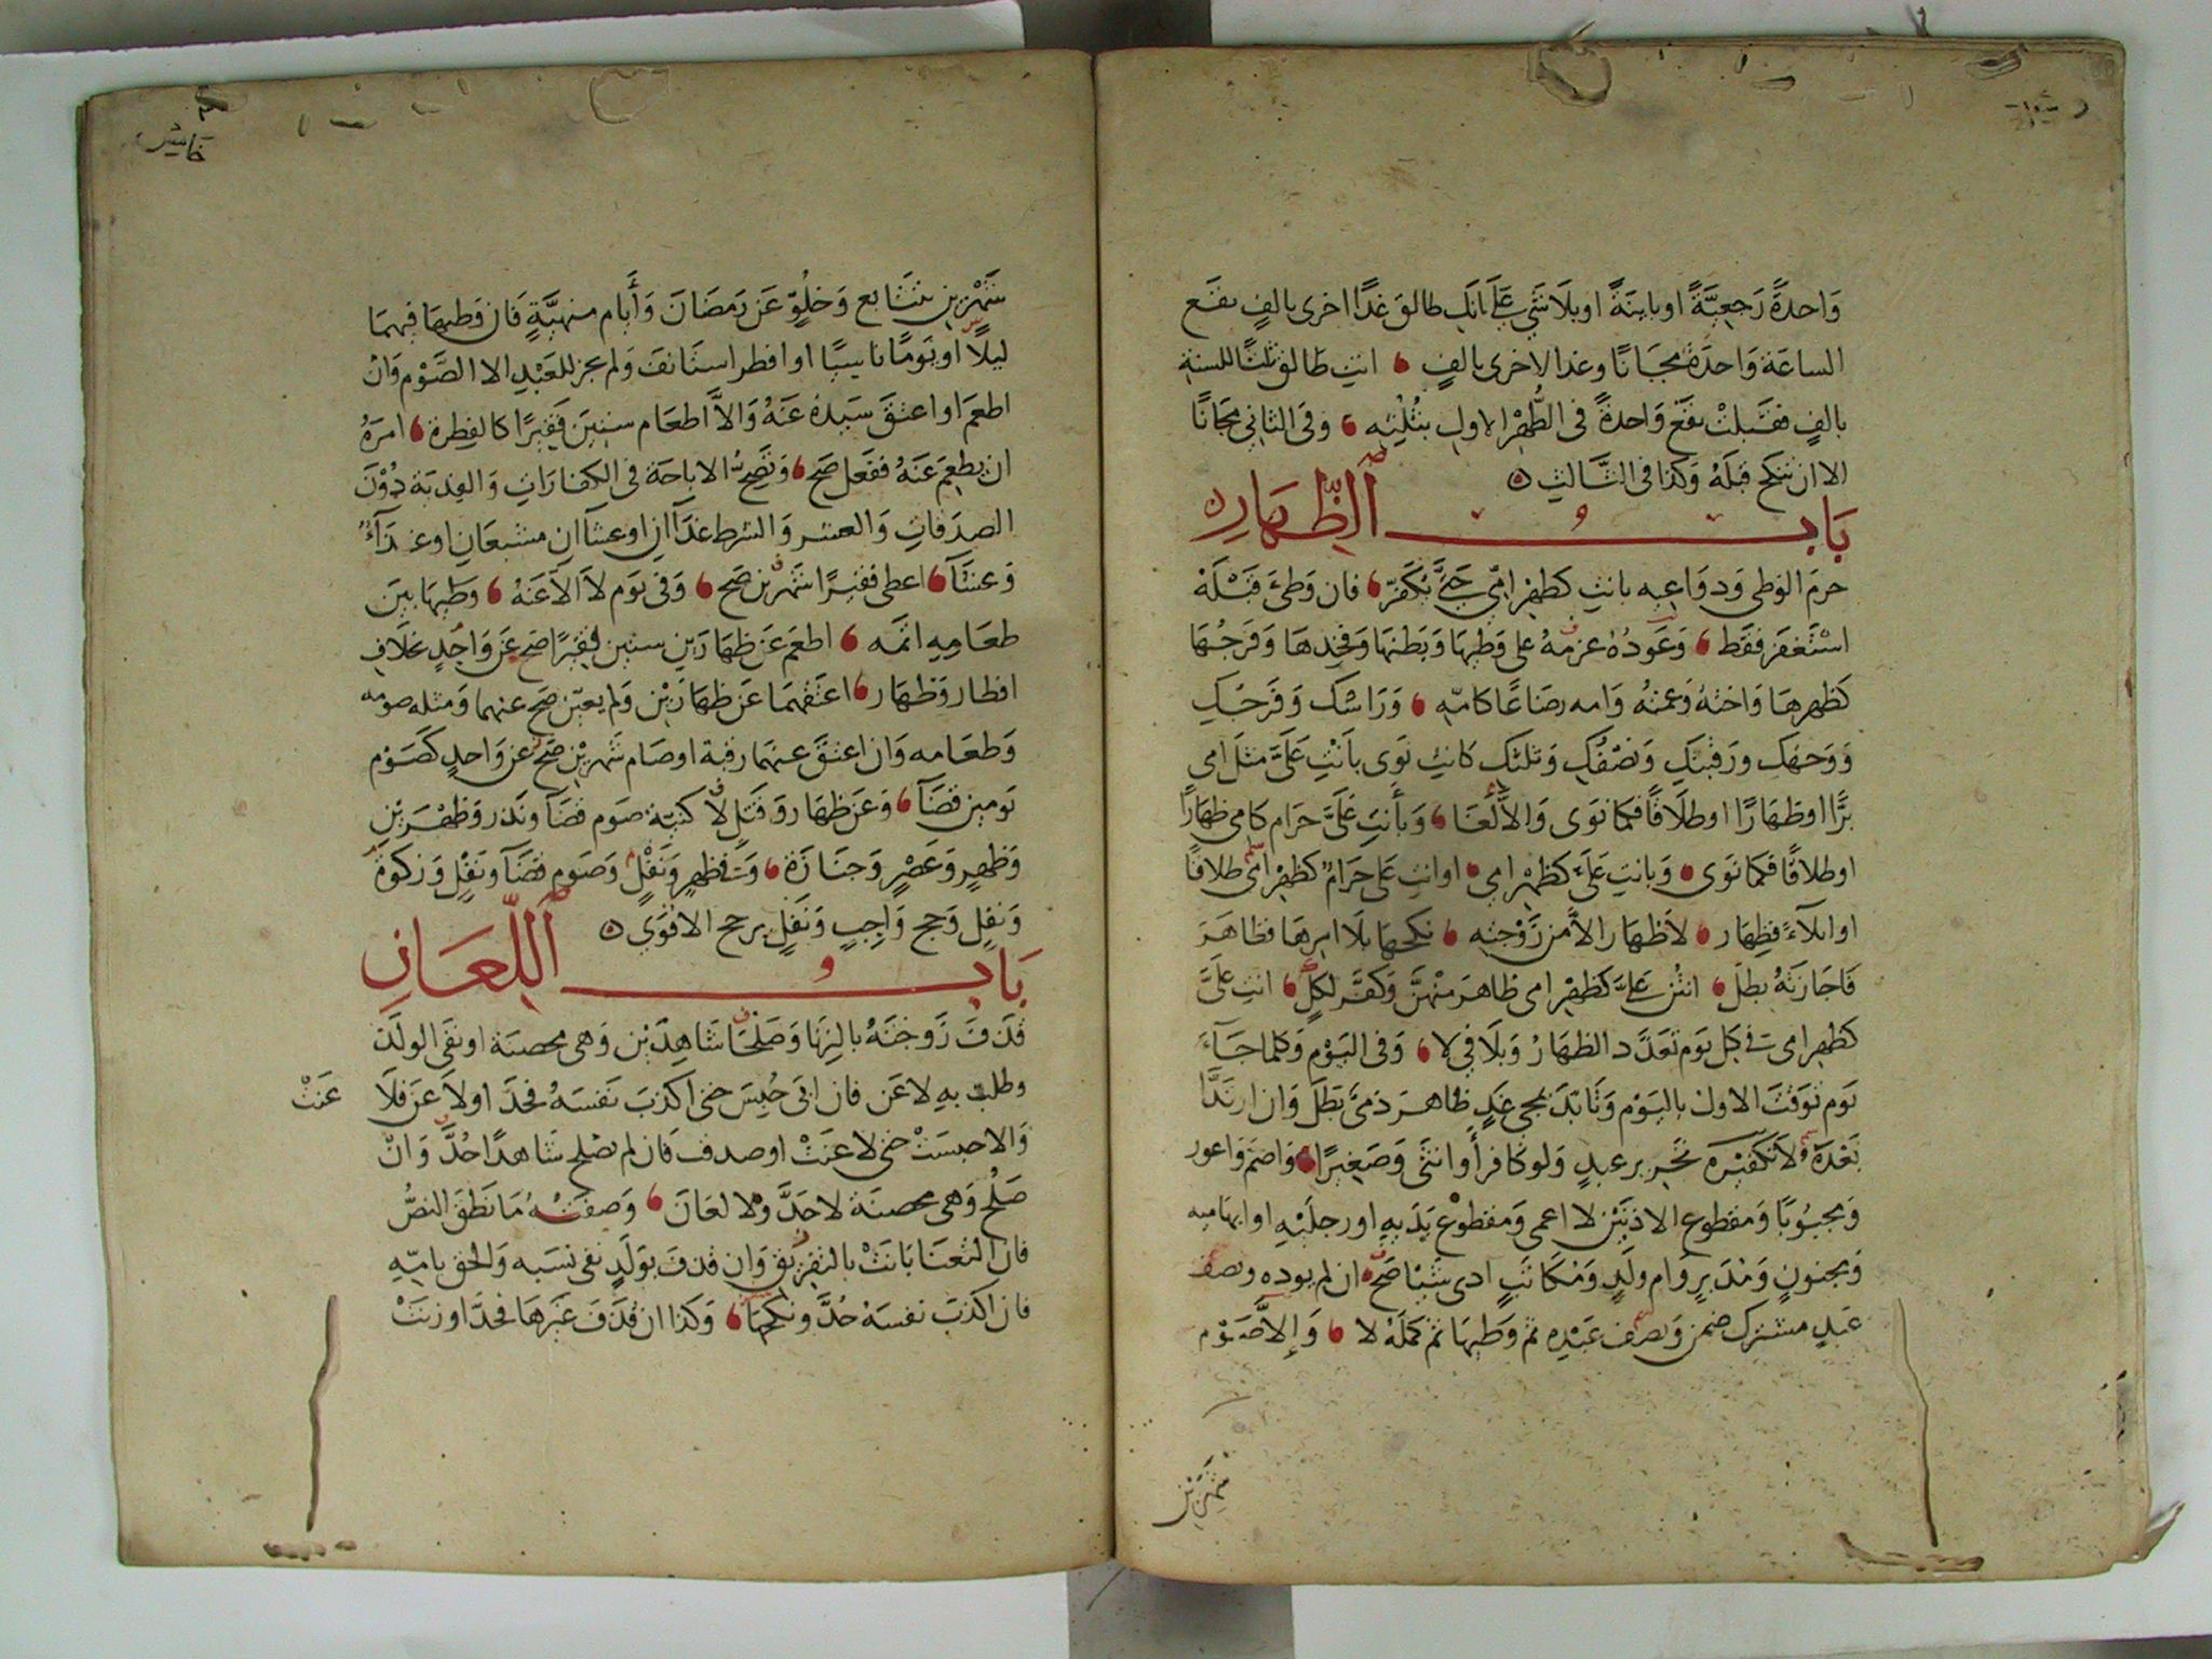 وَاحدةً رَجعِيَّةً اوباينَةً اوبلَا شَيْ عَلَى انَكِ طالق غدًا اخرى بالفٍ تقع
الساعَة وَاحدَة مجَانًا وغدا الاخرى بالفٍ انتِ طَالق ثلثًا للسنةِ
بالفٍ فقَبلتْ تقع وَاحدةً فى الطُّهْر الاول بثُلُثِه وفى الثانى مجَانًا
الا ان تنكح قبلَهُ وَكذا فى الثَّالثِ
بَابُ الظِّهَارِ
حرمَ الوَطى وَدوَاعِيه بانتِ كظهر امّى حَتّى يُكَفّرَ فان وَطئَ قَبْلَهُ
اسْتَغفَرَ فقَط وَعَودُهُ عزمُهُ على وَطيهَا وَبَطنهَا وَفخِذهَا وَفَرجُهَا
كَظهرهَا وَاختهُ وَعمتهُ وَامه رضَاعًا كامّهِ وَرَاسُكِ وَفَرجُكِ
وَوَجهُكِ وَرَقبتكِ وَنصْفُكِ وَثلثكِ كانتِ نَوَى بانْتِ عَلَىَّ مثلَ امى
بِرًّا اوظهَارًا اوطلَاقًا فكمَا نوَى وَالاّ لَغَا وَبأنتِ عَلَىَّ حَرَام كامى ظهَارًا
اوطلاقًا فكمَا نَوَى وَبانتِ عَلَىَّ كظهْر امى اوانتِ عَلى حَرَامٌ كظهر امّى طلاقًا
اوايلآءً فظِهَار لاَظهَار الاّ من زَوْجتِه نكحهَا بلَا امرهَا فظاهَرَ
فَاجَازتهُ بطلَ انتُن عَلىَّ كَظهْر امى ظاهَرَ منْهنَّ وَكفَّرَ لكلٍّ انتِ عَلىَّ
كظهر امى فى كل يَوم تَعَدَّد الظهَارُ وَبلَا فى لا وَفى اليَوْم وَكلما جَآءَ
يَوم توَقتَ الاول باليَوْم وَتَابّدَ بمجئ غَدٍ ظاهرَ ذمىّ بَطَلَ وَان ارتَدَّا
بَعْدَهُ لاَ تكفيْرَه تحرير عبدٍ وَلو كافرأ وانثى وَصَغيرًا وَاصَم وَاعور
وَمجبُوبًا وَمقطوع الاذنَيْن لا اعمى وَمقطوع يَدَيهِ اورجلَيْهِ اوابهَاميه
وَمجنونٍ وَمُدَبر وَام ولَدٍ وَمُكَاتَبٍ ادى شيْئا صَح ان لم يوده ونصف
عَبدٍ مشترك ضمن وَنصف عَبْدِه ثم وَطيهَا ثم كمّلهُ لا وَإلاَّ صَوْم
شهْرَيْن
شَهْرَيْنِ تتَابع وَخلُوّ عَن رَمَضَانَ وَأيَام منهيَّةٍ فَان وَطيهَا فيهمَا
ليلاً اويَومًا ناسِيًا اوافطر استَانفَ وَلم يجز للعَبْدِ الا الصَّوْم وَانْ
اطعَم اواعتقَ سَيدهُ عَنهُ وَالاَّ اطعَام ستينَ فَقيرًا كالفِطرة امرَهُ
ان يطعِمَ عَنهُ ففعَل صَح وَتصِحُّ الاباحَة فى الكفارَاتِ وَالفديَة دُوْنَ
الصدَقاتِ وَالعشر وَالشرط غدَآانِ اوعشآانِ مشبعَانِ اوغدَآءٌ
وَعشَآ اعطى فقيْرًا شهْرين صَح وَفى يَوم لاَ الاّ عَنهُ وَطيهَا بينَ
طعَامِهِ اثمَه اطعَم عَن ظهارَينِ ستين فقيرًا صَح عَن وَاحِدٍ بخلَافِ
افطار وَظهَار اعتَقهمَا عَن ظهَارَيْن وَلم يعيّن صَح عنهما وَمثله صومه
وَطعَامه وَان اعتقَ عنهمَا رقبَة اوصَام شهرَيْن صَح عن وَاحدٍ كَصَوْم
يَومين قضَآ وَعَن ظهَار وَقَتلٍ لا كنيّة صَوم قضَآ وَنَذر وَظهْرَيْنِ
وَظهرٍ وَعَصْرٍ وَجنَازَة وَفى ظهرٍ وَنَفْلٍ وَصَوم قضَآ وَنفْلٍ وَزكوة
وَنفلٍ وَحج وَاجِبٍ وَنَفلٍ يرجح الاقوَى
بَابُ اللّعَانِ
قذفَ زَوْجَتَهُ بالزنَا وَصَلحَا شاهِدَيْن وَهى محصَنة اونفى الولَدَ
وطلبَتْ بهِ لاعَن فان ابَى حُبِسَ حتى اكذبَ نَفسَهُ فحُدَّ اولاَعَن فلَا عَنَتْ
وَالا حبسَتْ حتى لاعَنَتْ اوصدقَت فَان لم يصْلح شاهدًا حُدَّ وَانْ
صَلُح وَهى محصنَة لاحَدَّ ولا لعَانَ وَصفَتهُ مَا نَطقَ النصُّ
فان التعَنَا بَانَتْ بالتفرِيْق وَان قذفَ بوَلَدٍ نفى نسَبه وَالحق بامّهِ
فان اكذبَ نفسَهُ حُدَّ ونكحهَا وَكذا ان قذَفَ غَيْرهَا فحُدَّ اوزنَتْ